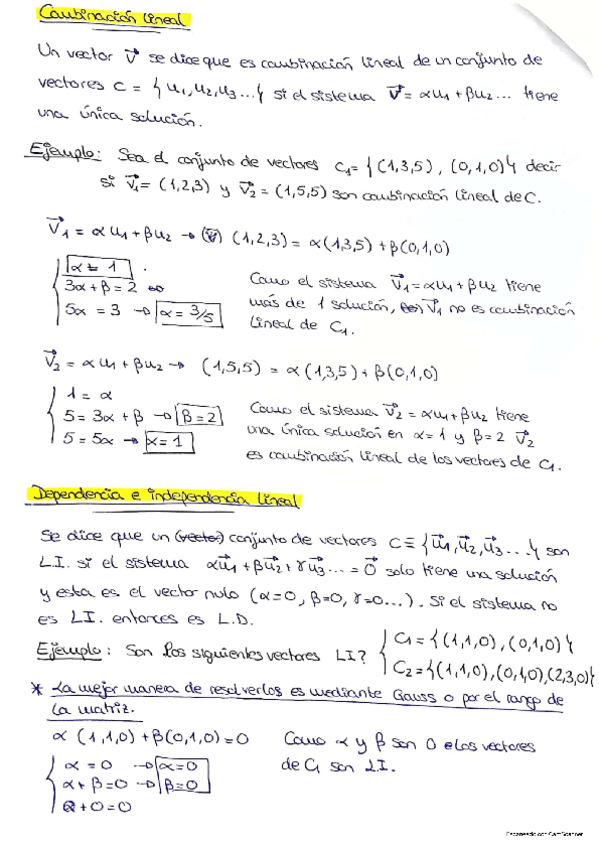 Combinación lineal
Un vector v⃗ se dice que es combinación lineal de un conjunto de
vectores C = {u₁, u₂, u₃ ...} si el sistema v⃗ = αu₁ + βu₂ ... tiene
una única solución.
Ejemplo: Sea el conjunto de vectores C₁ = {(1,3,5), (0,1,0)} decir
si v⃗₁ = (1,2,3) y v⃗₂ = (1,5,5) son combinación lineal de C.
v⃗₁ = αu₁ + βu₂ → (1,2,3) = α(1,3,5) + β(0,1,0)
α = 1
3α + β = 2
5α = 3 → α = 3/5
Como el sistema v⃗₁ = αu₁ + βu₂ tiene
más de 1 solución, v⃗₁ no es combinación
lineal de C₁.
v⃗₂ = αu₁ + βu₂ → (1,5,5) = α(1,3,5) + β(0,1,0)
1 = α
5 = 3α + β → β = 2
5 = 5α → α = 1
Como el sistema v⃗₂ = αu₁ + βu₂ tiene
una única solución en α = 1 y β = 2 v⃗₂
es combinación lineal de los vectores de C₁.
Dependencia e independencia lineal
Se dice que un (vector) conjunto de vectores C = {u⃗₁, u⃗₂, u⃗₃ ...} son
L.I. si el sistema αu⃗₁ + βu⃗₂ + γu⃗₃ ... = 0⃗ solo tiene una solución
y esta es el vector nulo (α=0, β=0, γ=0...). Si el sistema no
es LI. entonces es L.D.
Ejemplo: Son los siguientes vectores LI? C₁ = {(1,1,0), (0,1,0)}
C₂ = {(1,1,0), (0,1,0), (2,3,0)}
* La mejor manera de resolverlos es mediante Gauss o por el rango de
la matriz.
α(1,1,0) + β(0,1,0) = 0
α = 0 → α = 0
α + β = 0 → β = 0
0 + 0 = 0
Como α y β son 0 los vectores
de C₁ son LI.
Escaneado con CamScanner